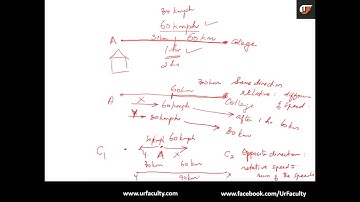 30 kmph
60 kmph ✓
30km 60km
A College
1 hr ✓
2 hr
300km Same direction
60km relative: differen
A College of speed
X → 60 kmph after 1 hr 60 km
Y → 30 kmph 30 km
30kmph 60 kmph
C1 Y A X C2 Opposite direction:
30km 60 km relative speed =
90km sum of the speeds
www.urfaculty.com www.facebook.com/UrFaculty